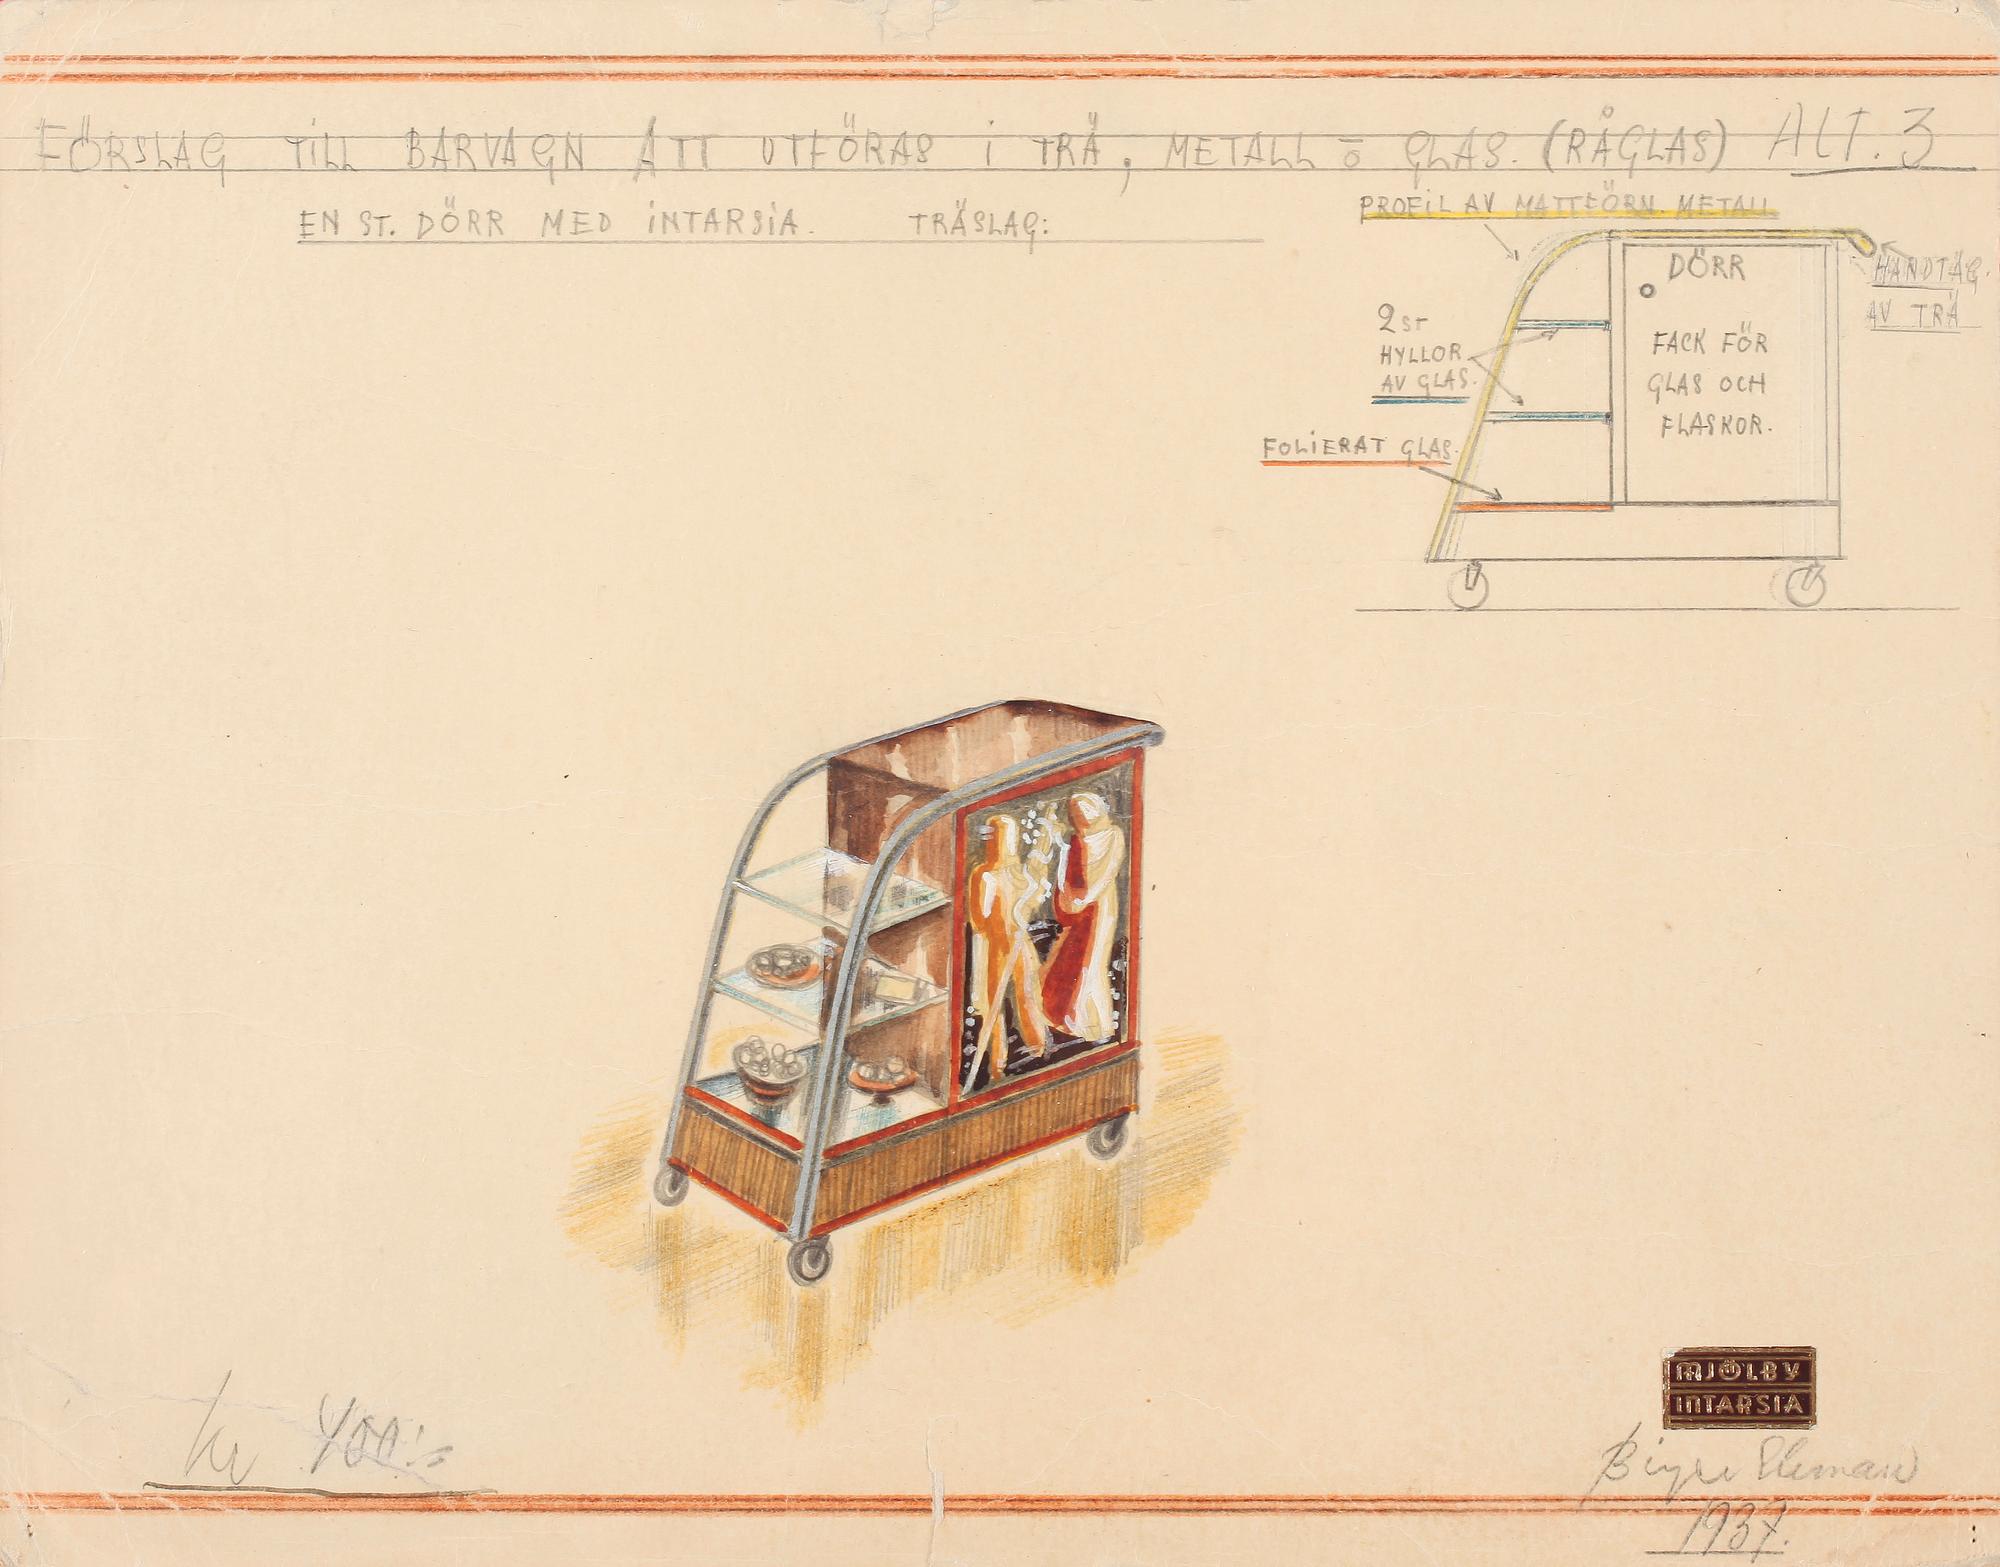 FÖRSLAG TILL BARVAGN ATT UTFÖRAS I TRÄ, METALL O GLAS. (RÅGLAS) ALT. 3
EN ST. DÖRR MED INTARSIA. TRÄSLAG:
PROFIL AV MATTFÖRN. METALL
DÖRR
HANDTAG.
AV TRÄ
2 ST
HYLLOR
AV GLAS.
FACK FÖR
GLAS OCH
FLASKOR.
FOLIERAT GLAS.
MJÖLBY
INTARSIA
kr 400:-
Birger Ekman
1937.